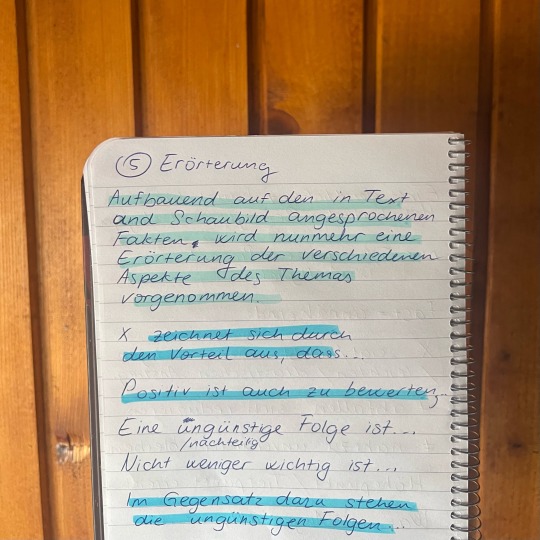 ⑤ Erörterung
Aufbauend auf den in Text
und Schaubild angesprochenen
Fakten, wird nunmehr eine
Erörterung der verschiedenen
Aspekte des Themas
vorgenommen.
X zeichnet sich durch
den Vorteil aus, dass...
Positiv ist auch zu bewerten,...
Eine ungünstige Folge ist...
/nachteilig
Nicht weniger wichtig ist...
Im Gegensatz dazu stehen
die ungünstigen Folgen...